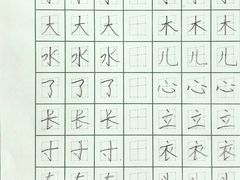 大 大 大 木 木 木
水 水 水 儿 儿 儿
了 了 了 心 心 心
长 长 长 立 立 立
寸 寸 寸 衣 衣 衣